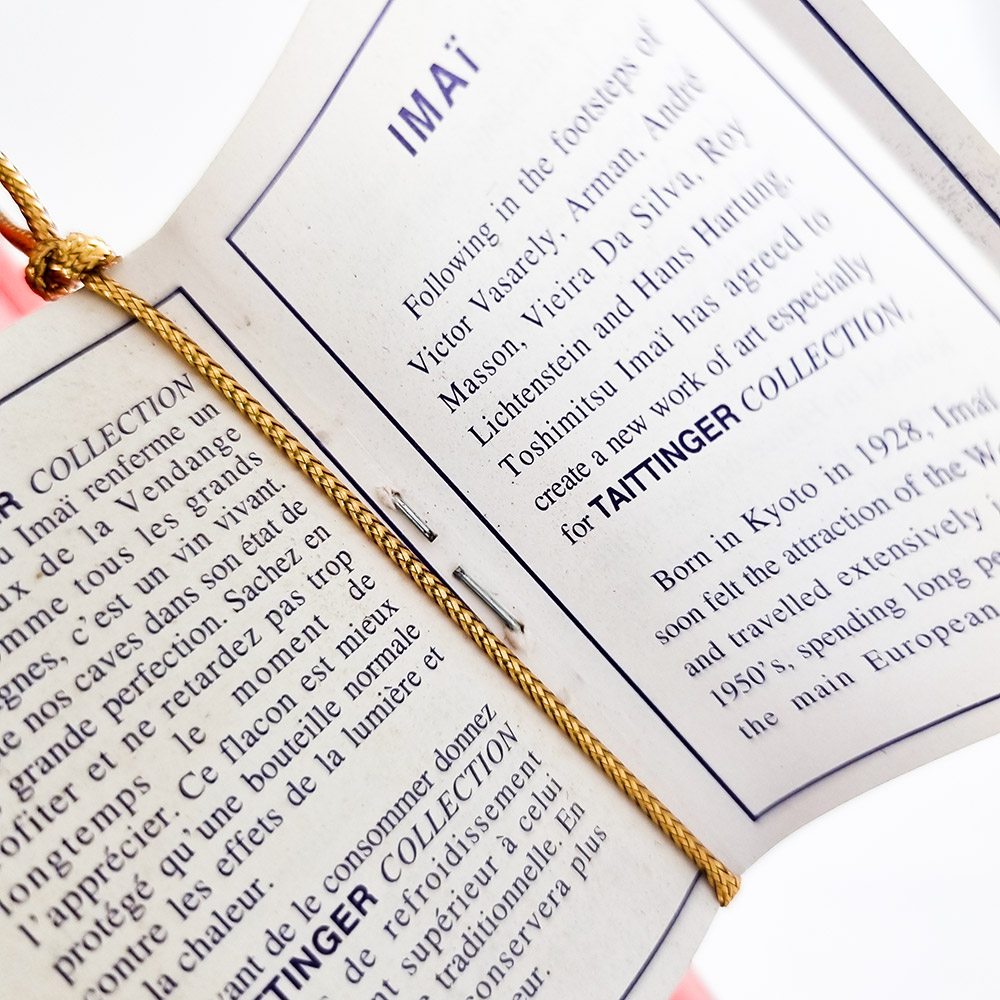 COLLECTION
Imaï renferme un
de la Vendange
tous les grands
c'est un vin vivant.
nos caves dans son état de
grande perfection. Sachez en
et ne retardez pas trop
longtemps le moment de
l'apprécier. Ce flacon est mieux
protégé qu'une bouteille normale
contre les effets de la lumière et
la chaleur.
de le consommer donnez
COLLECTION
de refroidissement
supérieur à celui
traditionnelle. En
plus
IMAÏ
Following in the footsteps of
Victor Vasarely, Arman, André
Masson, Vieira Da Silva, Roy
Lichtenstein and Hans Hartung,
Toshimitsu Imaï has agreed to
create a new work of art especially
for TAITTINGER COLLECTION.
Born in Kyoto in 1928, Imaï
soon felt the attraction of the
and travelled extensively
1950's, spending long
the main European